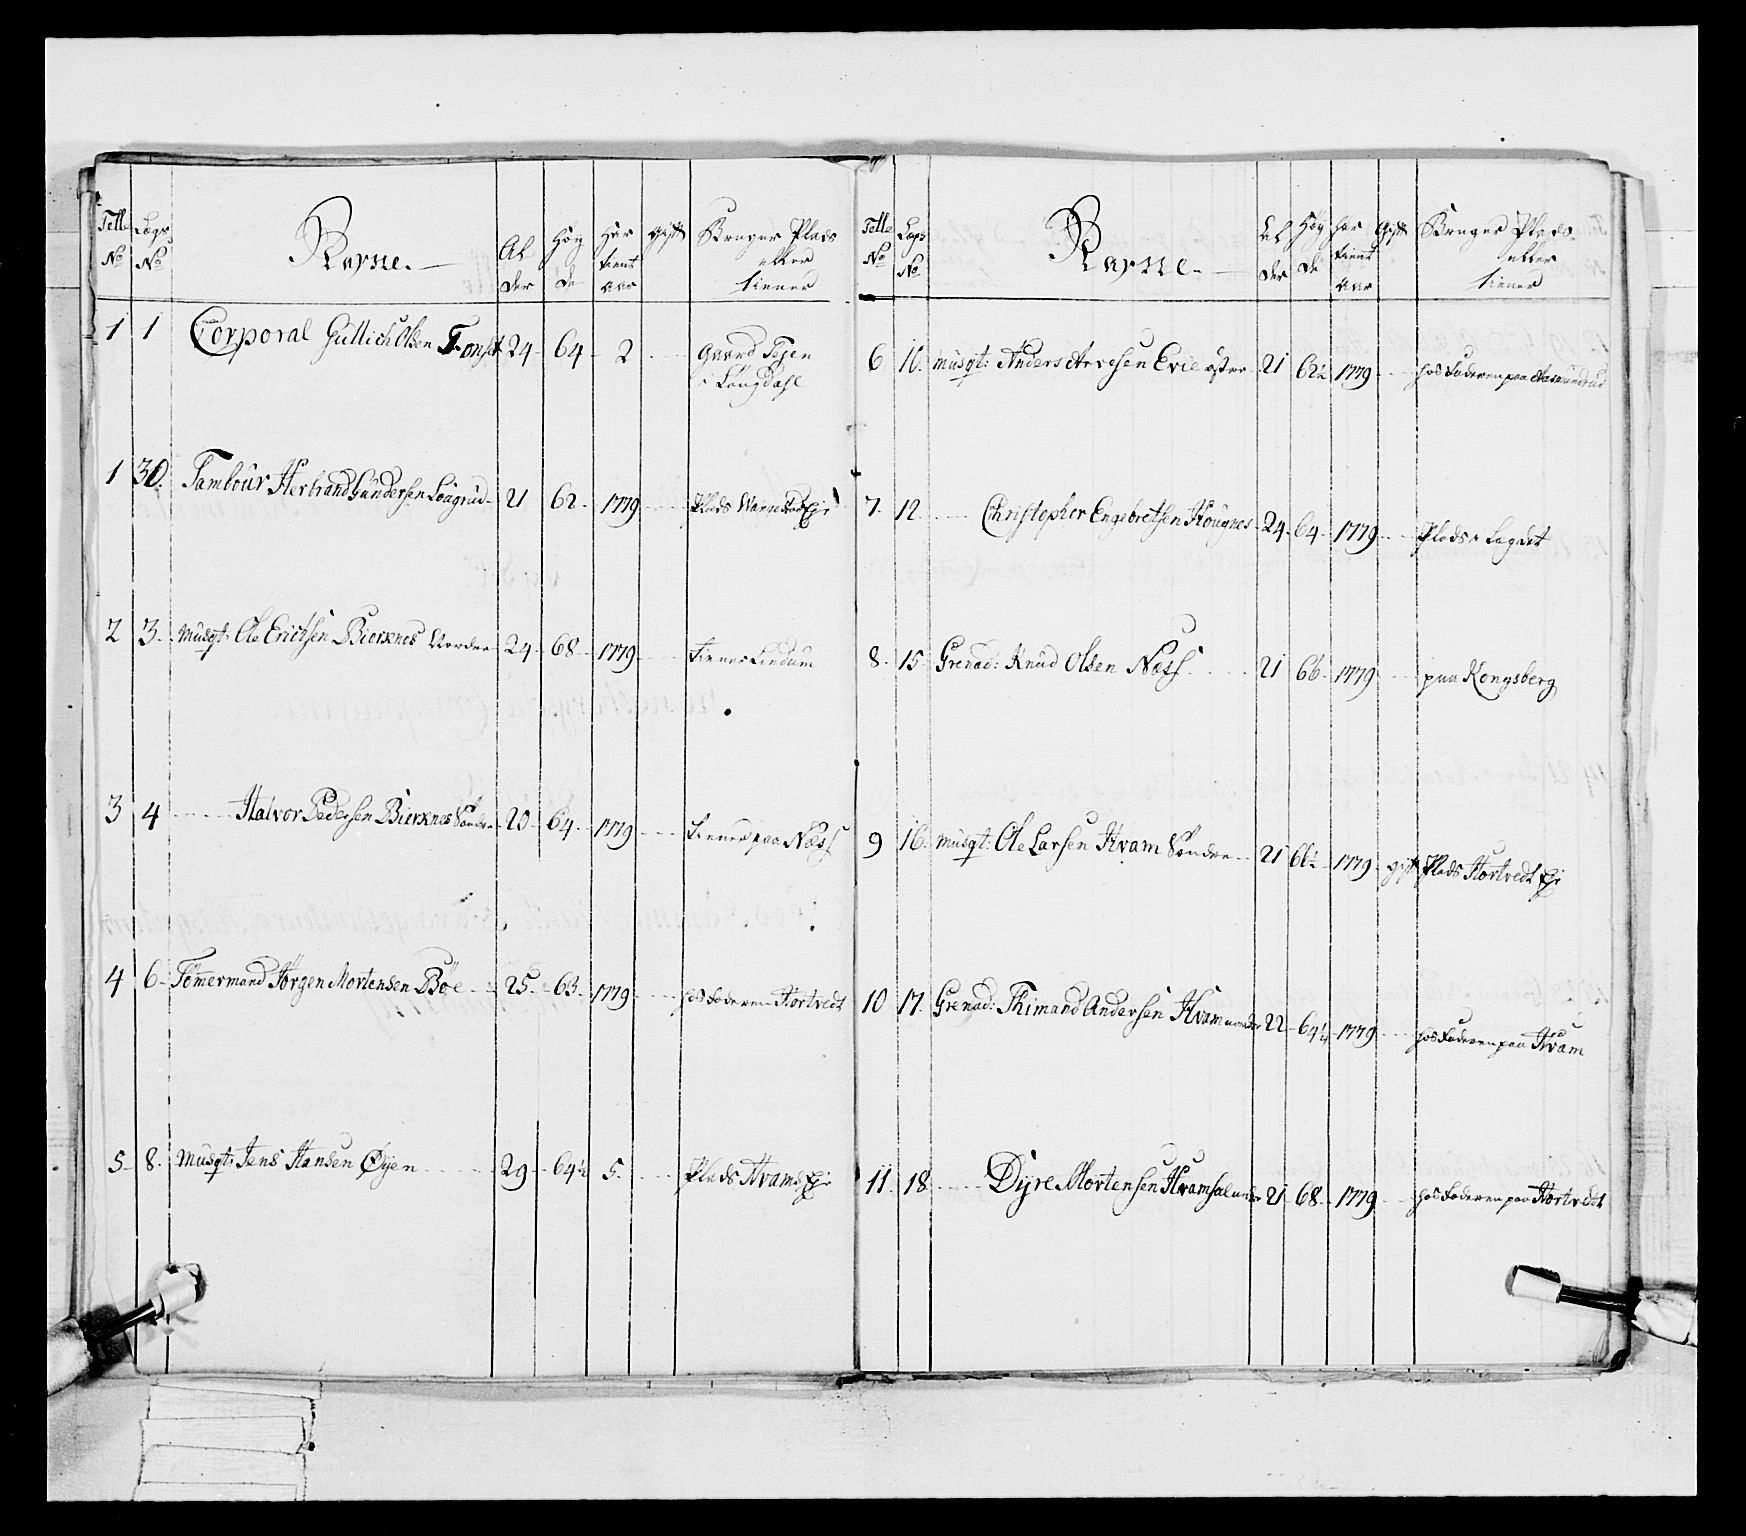 Telle No Lægs No Navne. Al der Høy de Har tient aar Gift Bruger Plads eller tiener
1 1 Corporal Gullich Olsen 24 64 2 Gaard Tejen
i Laugdahl
1 30. Tambour Herbrand Gundersen 21 62 1779 Plads
2 3. Musqt: Ole Erichsen Bierknes Nordre 24 68 1779 tiener Lindum
3 4 Halvor Pedersen Bierknes Søndre 20 64 1779 tiener paa Næss
4 6 Tømmermand Jørgen Mortensen Bøe 25 63 1779 hos Faderen Hortvedt
5 8. Musqt: Jens Hansen Øyen 29 64½ 5. Plads Hvams Eje
Telle No Lægs No Navne. Al der Høy de har tient aar Gift Bruger Plads eller tiener
6 10. Musqt: Anders Arvesen Evie østre 21 62½ 1779 hos Faderen paa Aasmundrud
7. 12. Christopher Engebretsen Hougnes 24 64 1779 Plads i Lægdet
8. 15 Grenad: Knud Olsen Næss 21 66 1779 paa Kongsberg
9 16. Musqt: Ole Larsen Hvam Søndre 21 66½ 1779 gift Plads Hortvedt Eje
10 17. Grenad: Thimand Andersen Hvam nordre 22 64¼ 1779 hos Faderen paa Hvam
11. 18 Dyre Mortensen 21 68 1779 hos Faderen paa Hortvedt